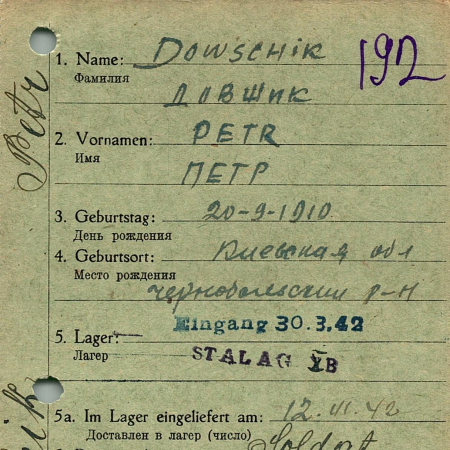 192
1. Name: DOWSCHIK
Фамилия
ДОВЩИК
2. Vornamen: PETR
Имя
ПЕТР
3. Geburtstag: 20-9-1910
День рождения
4. Geburtsort: Киевская обл
Место рождения
Чернобольский р-н
Eingang 30.3.42
5. Lager:
Лагерь
STALAG XB
5a. Im Lager eingeliefert am:
Доставлен в лагерь (число)
Soldat
Petr